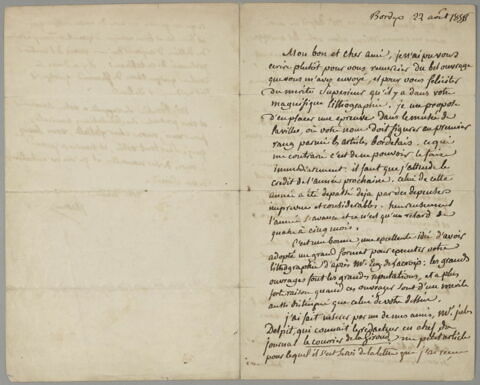 Bordx 22 août 1858
Mon bon et cher ami, je n'ai pu vous
écrire plutôt pour vous remercier du bel ouvrage
que vous m'avez envoyé, et pour vous féliciter
du mérite supérieur qu'il y a dans votre
magnifique lithographie. je me propose
d'en placer une épreuve dans le musée de
la ville, où votre nom doit figurer en premier
rang parmi les artistes Bordelais. ce qui
me contrarie c'est de ne pouvoir le faire
immédiatement: il faut que j'attende le
crédit de l'année prochaine. celui de cette
année a été dépassé déjà par des dépenses
imprévues et considérables. heureusement
l'année s'avance et ce n'est qu'un retard de
quatre à cinq mois.
C'est une bonne, une excellente idée d'avoir
adopté un grand format pour exécuter votre
lithographie d'après Mr. Eug. Delacroix: les grands
ouvrages font les grandes réputations, et a plus
forte raison quand ces ouvrages sont d'un mérite
aussi distingué que celui de votre
j'ai fait insérer par un de mes amis, Mr. Jules
Delpit, qui connait le rédacteur en chef du
journal le courrier de la Gironde un petit article
pour lequel il s'est servi de la lettre que j'ai reçue